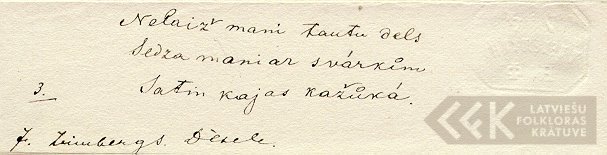 Nelaiž mani tautu dels
Sedza mani ar svárkim
3. Satin kajas kažůká.
J. Zimbergs. Dēsele.
LATVIEŠU
FOLKLORAS
KRĀTUVE